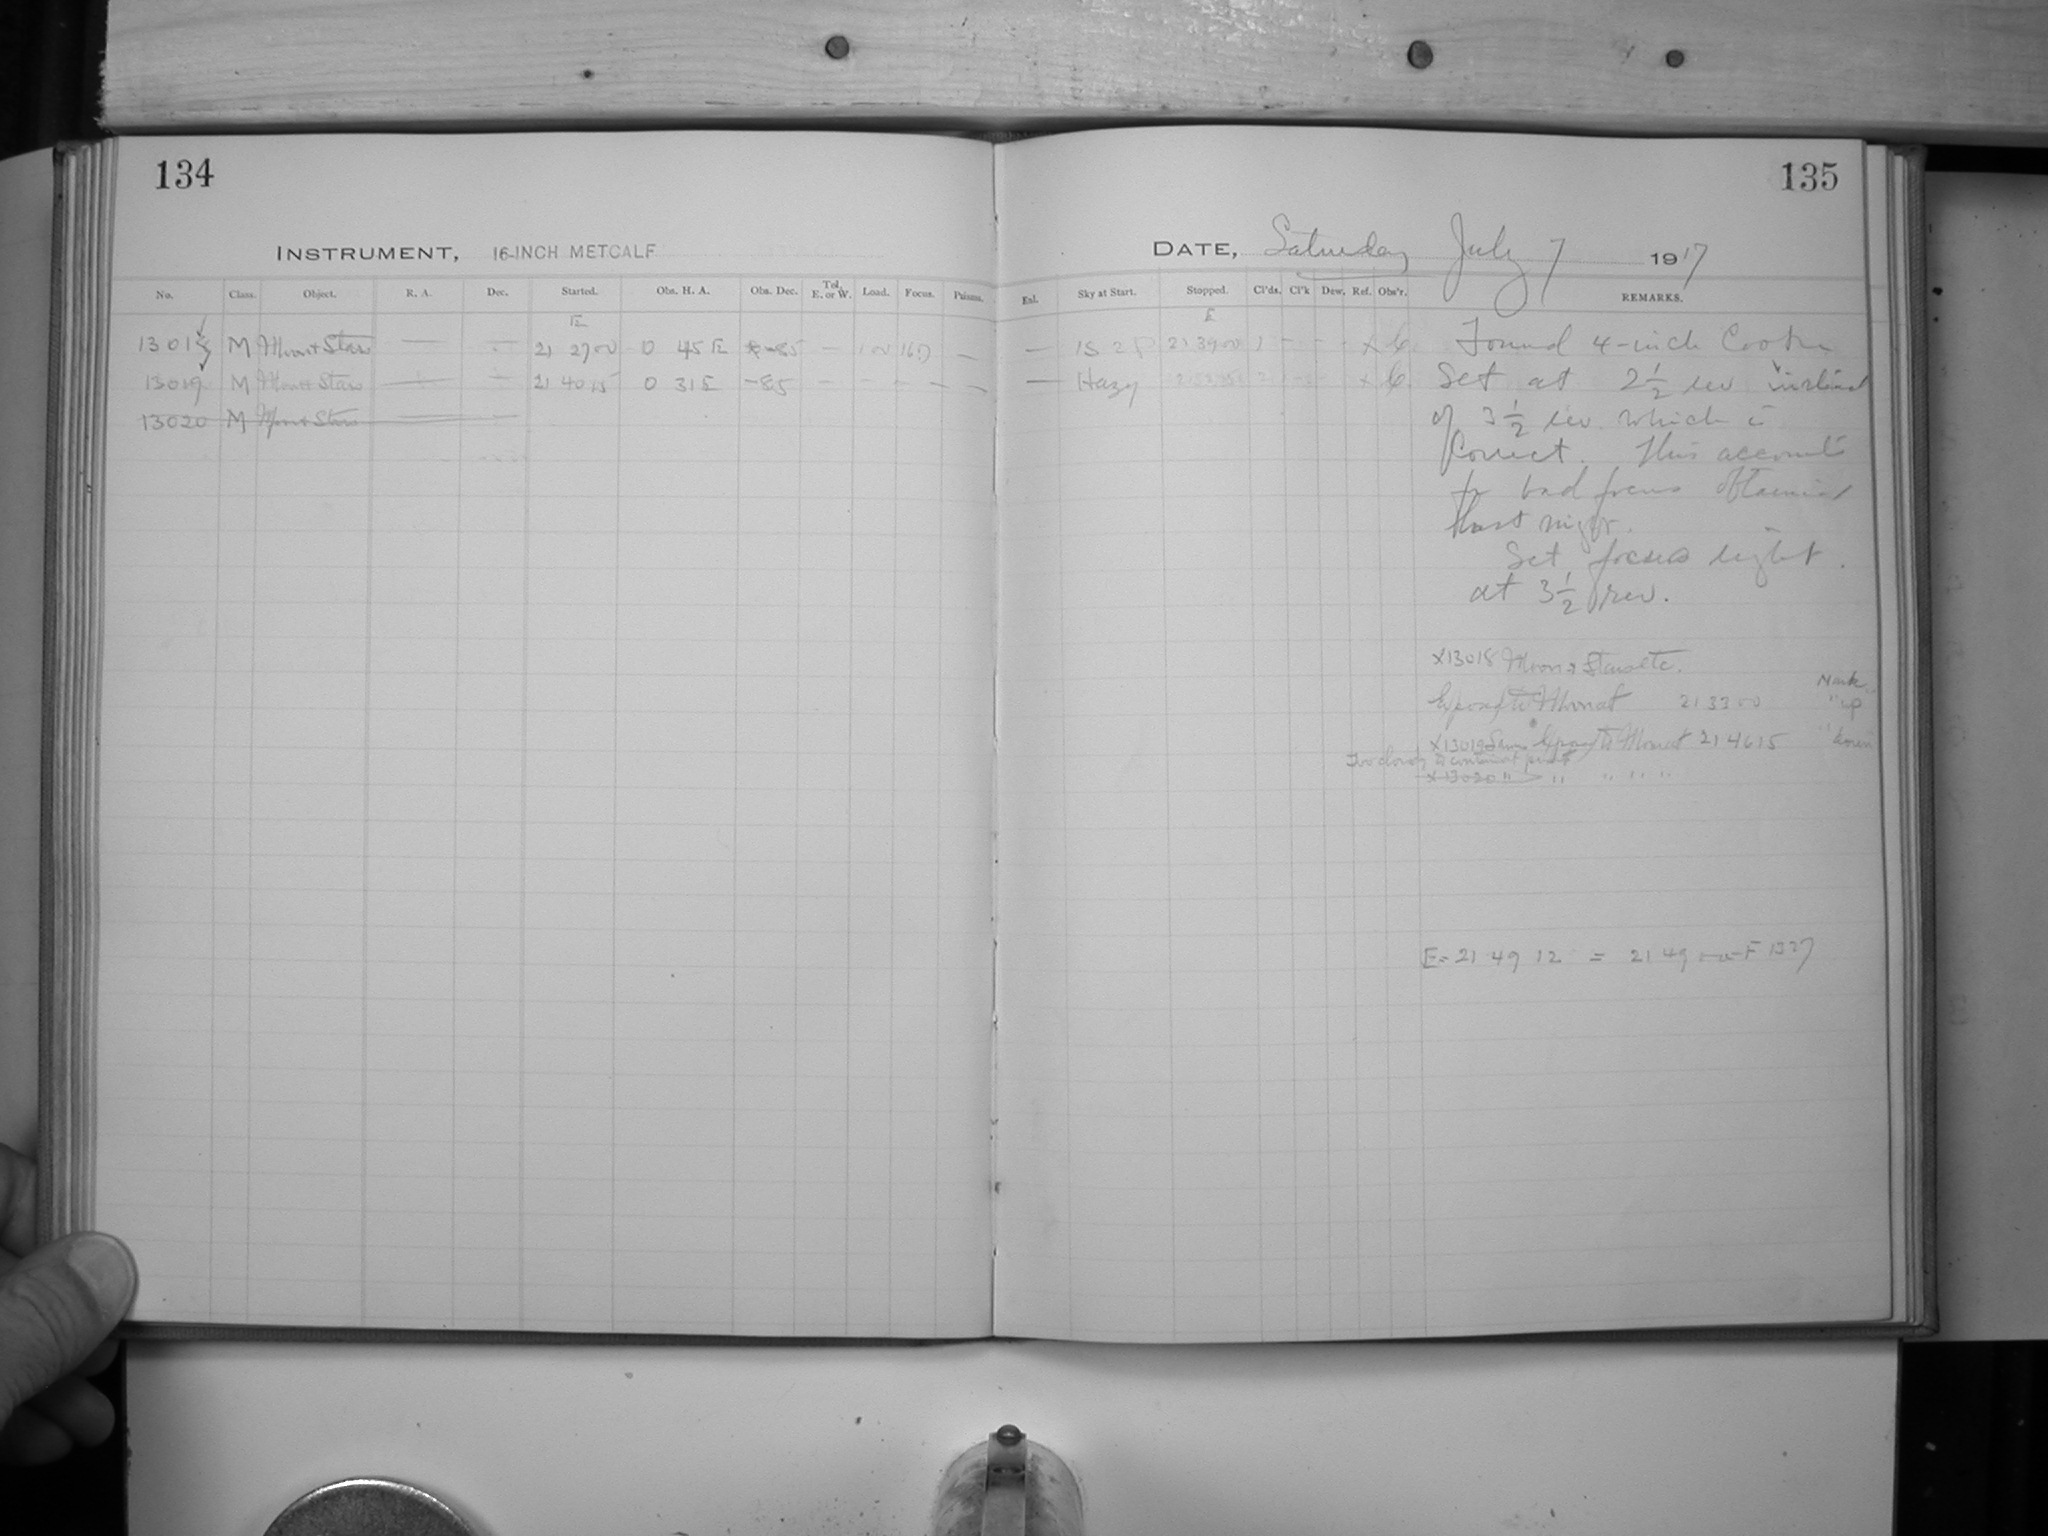 134
INSTRUMENT, 16-INCH METCALF
No. Class. Object. R. A. Dec. Started. Obs. H. A. Obs. Dec. Tel. E. or W. Load. Focus. Prisms.
E
13018 M Moon + Stars — - 21 27 00 0 45 E -85 — 160 —
13019 M Moon + Stars — - 21 40 15 0 31 E -85 - - - - -
13020 M Moon + Stars
135
DATE, Saturday July 7 1917
Exl. Sky at Start. Stopped. Cl'ds. Cl'k Dew. Ref. Obs'r. REMARKS.
E
— 1S 2P 21 39 00 1 - - - x 6
— Hazy x 6
Found 4-inch Cooke
Set at 2 1/2 rev instead
of 3 1/2 rev. which is
correct. This accounts
for bad focus obtained
last night.
Set focus right.
at 3 1/2 rev.
x13018 Moon & Stars etc.
Expos to Moon at 21 33 00
" up
x13019 Same Expos to Moon at 21 46 15
Too cloudy to continue
x 13020 " " " " "
E = 21 49 12 = 21 49 F 1327